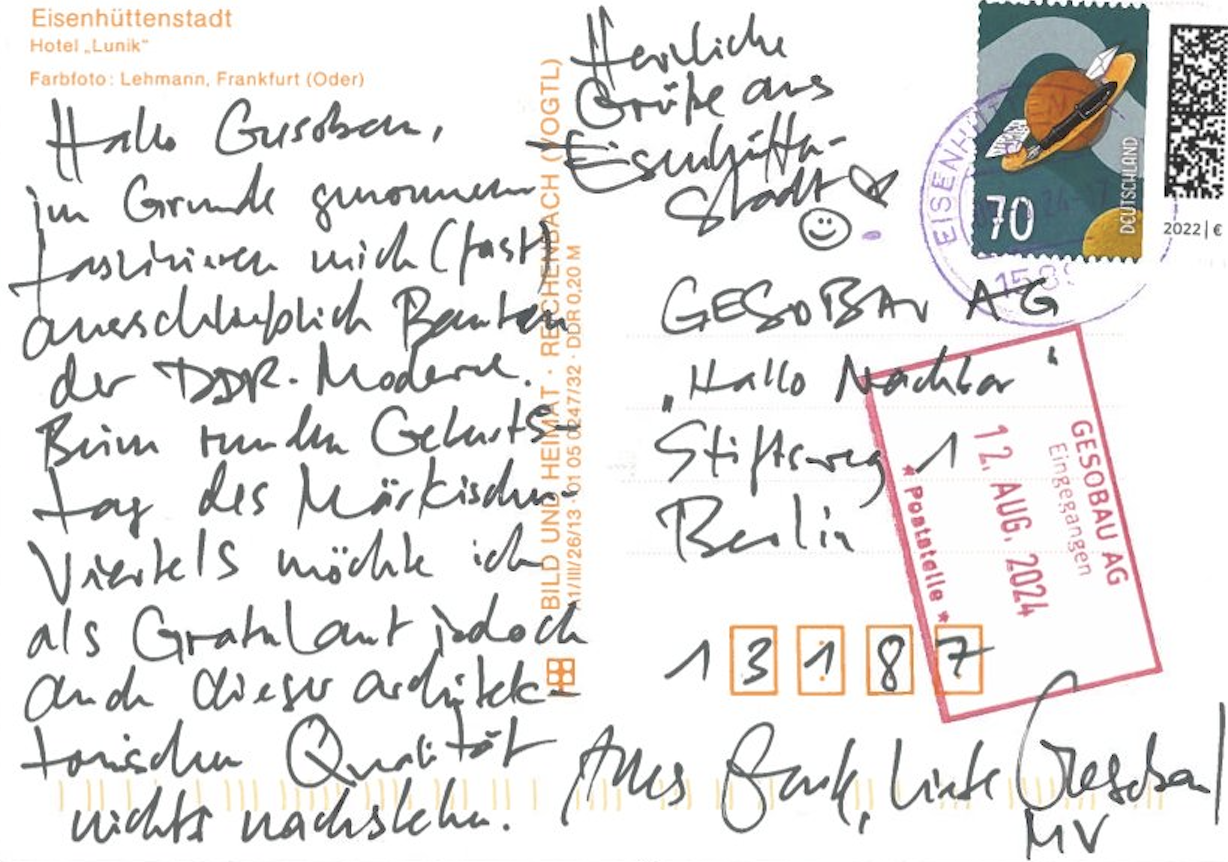 Eisenhüttenstadt
Hotel „Lunik“
Farbfoto: Lehmann, Frankfurt (Oder)
Hallo Gesobau,
im Grunde genommen
faszinieren mich (fast)
ausschließlich Bauten
der DDR-Moderne.
Beim runden Geburts-
tag des Märkischen
Viertels möchte ich
als Gratulant jedoch
auch dieser architek-
tonischen Qualität
nichts nachstehen.
BILD UND HEIMAT · REICHENBACH (VOGTL)
A1/III/26/13 · 01 05 0247/32 · DDR 0,20 M
Herzliche
Grüße aus
Eisenhütten-
stadt
70
DEUTSCHLAND
2022 | €
GESOBAU AG
„Hallo Nachbar“
Stiftsweg 1
Berlin
1 3 1 8 7
GESOBAU AG
Eingegangen
12. AUG. 2024
* Poststelle *
Alles Gute, liebe
MV